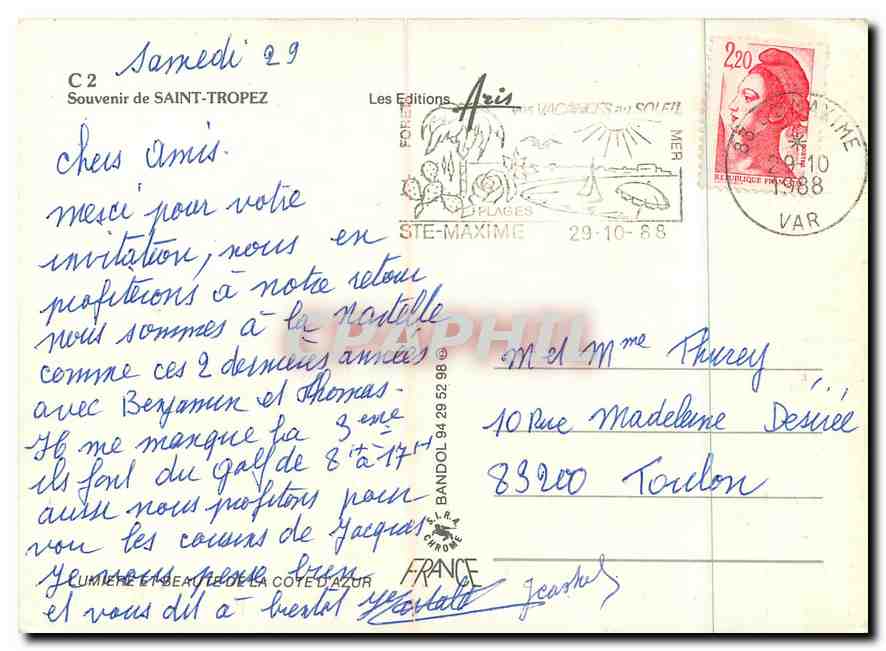 Samedi 29
C 2
Souvenir de SAINT-TROPEZ
Les Editions Aris
chers Amis.
merci pour votre
invitation, nous en
profiterons à notre retour
nous sommes à la
comme ces 2 dernières années
avec Benjamin et Thomas.
Il me manque la 3eme
ils font du golf de 8h à 17H
aussi nous profitons pour
voir les cousins de Jacques
Je vous
LUMIERE ET BEAUTE DE LA COTE D'AZUR
et vous dit à bientôt
vos VACANCES au SOLEIL
FORET
MER
PLAGES
STE-MAXIME 29-10-88
2,20
REPUBLIQUE FRANCAISE
83 STE MAXIME
29-10
1988
VAR
M et Mme Thurey
10 Rue Madeleine Desirée
83200 Toulon
BANDOL 94 29 52 98 ©
S.I.R.A.
CHROME
FRANCE
CPAPHIL